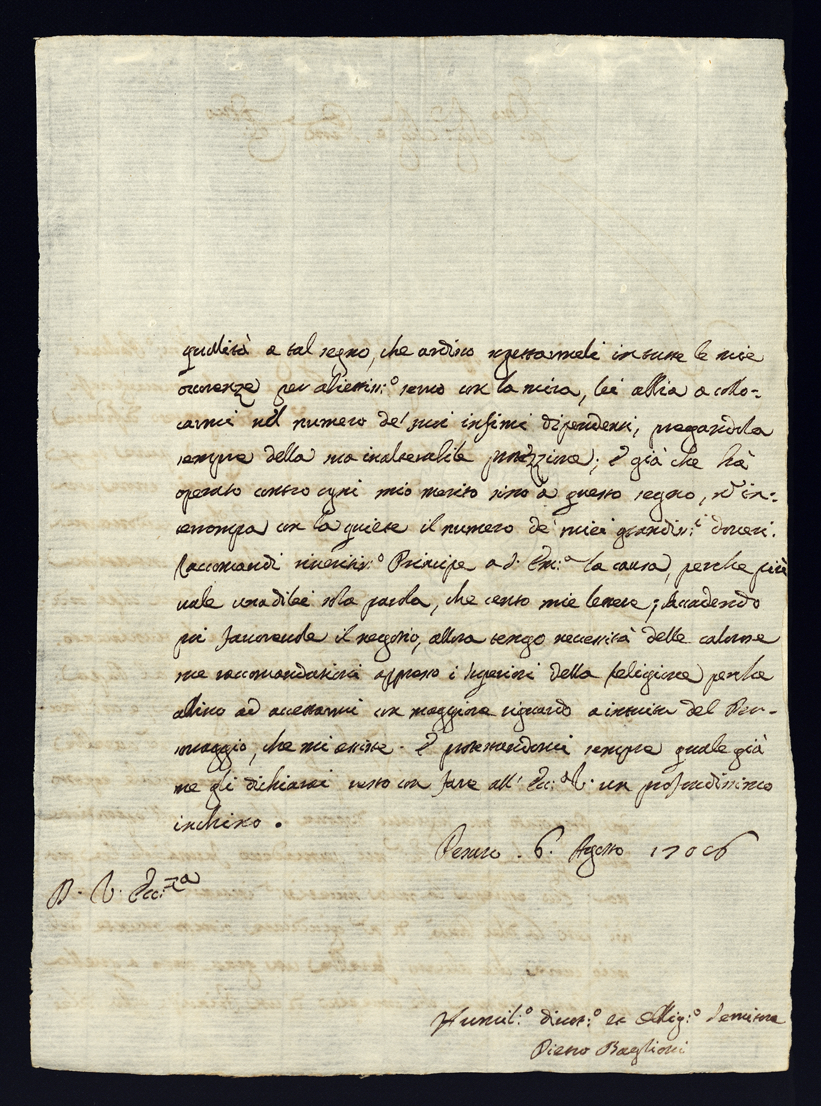 qualità a tal segno, che ardisco rgettarmeli in tutte le mie
ocorenze per obietiss:º servo con la mira, lei abbia a collo-
carmi nel numero de' suoi infimi dipendenti, pregandola
sempre della sua inalterabile protezzione; E già che hà
operato contro ogni mio merito sino à questo segno, in-
con la quiete il numero de' miei grandis:ⁱ doveri.
Raccomandi riveritis:º Principe a d:ª Em:ª la causa, perche più
vale una di lei sola parola, che cento mie lettere; Accadendo
poi favorevole il negozio, allora tengo necessità delle calorose
sue racomandationi appresso i superiori della Religione perche
abbino ad accettarmi con maggiore riguardo a intuito del Per-
sonaggio, che mi assiste. E protestandomi sempre quale già
me gli dichiarai resto con fare all' Ecc:ª V: un profondissimo
inchino.
Pesaro. 6. Agosto 1706
D. V. Ecc:za
Humil:º divot:º et Oblig:º Servitore
Pietro Baglioni